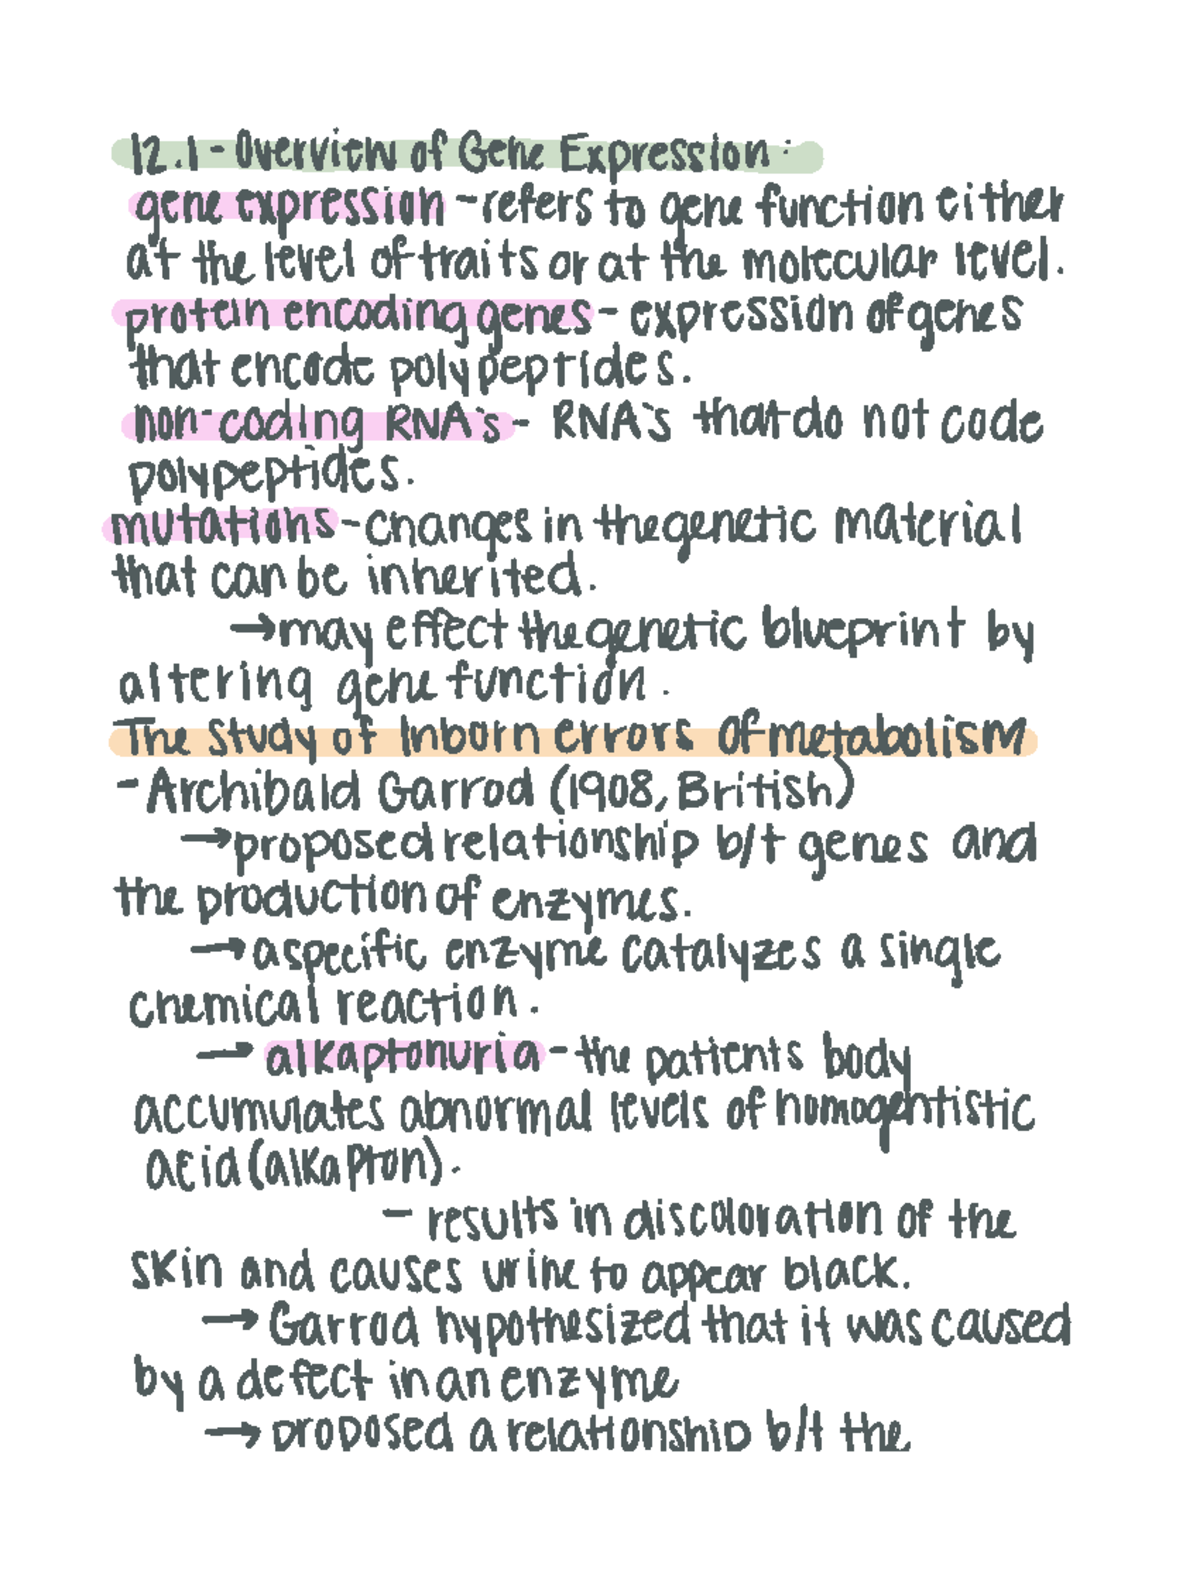 12.1 - Overview of Gene Expression:
gene expression - refers to gene function either
at the level of traits or at the molecular level.
protein encoding genes - expression of genes
that encode polypeptides.
non-coding RNA's - RNA's that do not code
polypeptides.
mutations - changes in the genetic material
that can be inherited.
→ may effect the genetic blueprint by
altering gene function.
The Study of Inborn errors of metabolism
- Archibald Garrod (1908, British)
→ proposed relationship b/t genes and
the production of enzymes.
→ a specific enzyme catalyzes a single
chemical reaction.
→ alkaptonuria - the patients body
accumulates abnormal levels of homogentistic
acid (alkapton).
- results in discoloration of the
skin and causes urine to appear black.
→ Garrod hypothesized that it was caused
by a defect in an enzyme
→ proposed a relationship b/t the